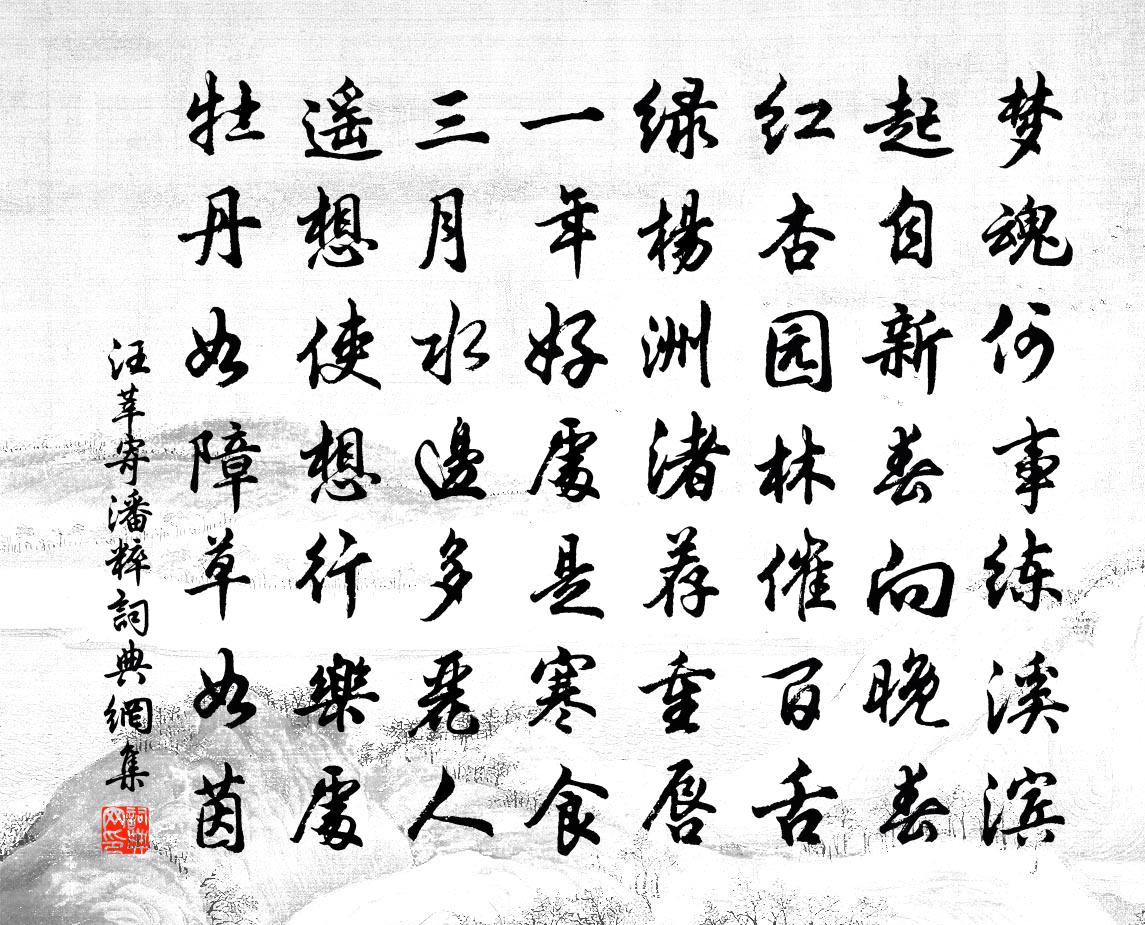 梦魂何事练溪滨
起自新春向晚春
红杏园林催百舌
绿杨洲渚荐重唇
一年好處是寒食
三月水邊多麗人
遥想使想行樂處
牡丹如障草如茵
汪莘寄潘粹詞典網集